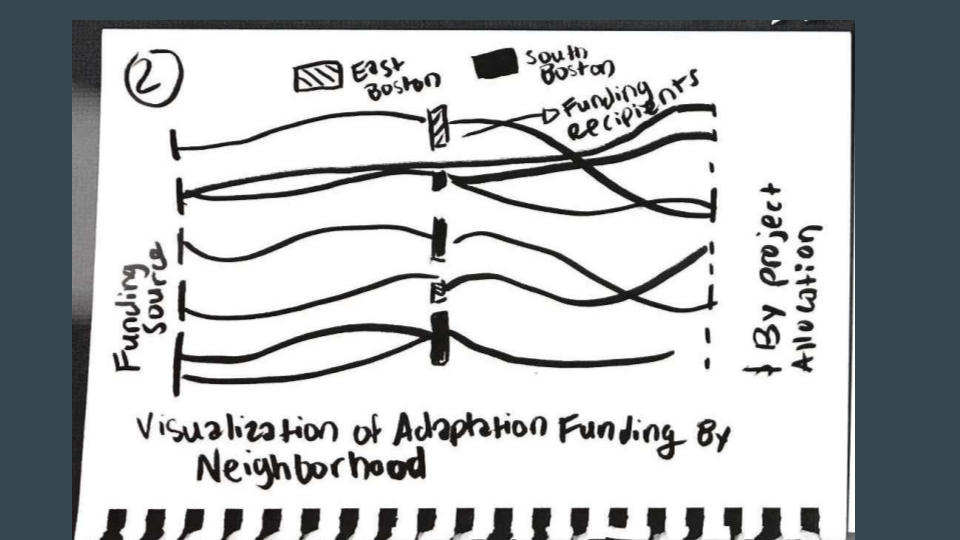 2
East
Boston
South
Boston
Funding
recipients
Funding
Source
$ By project
Allocation
Visualization of Adaptation Funding By
Neighborhood